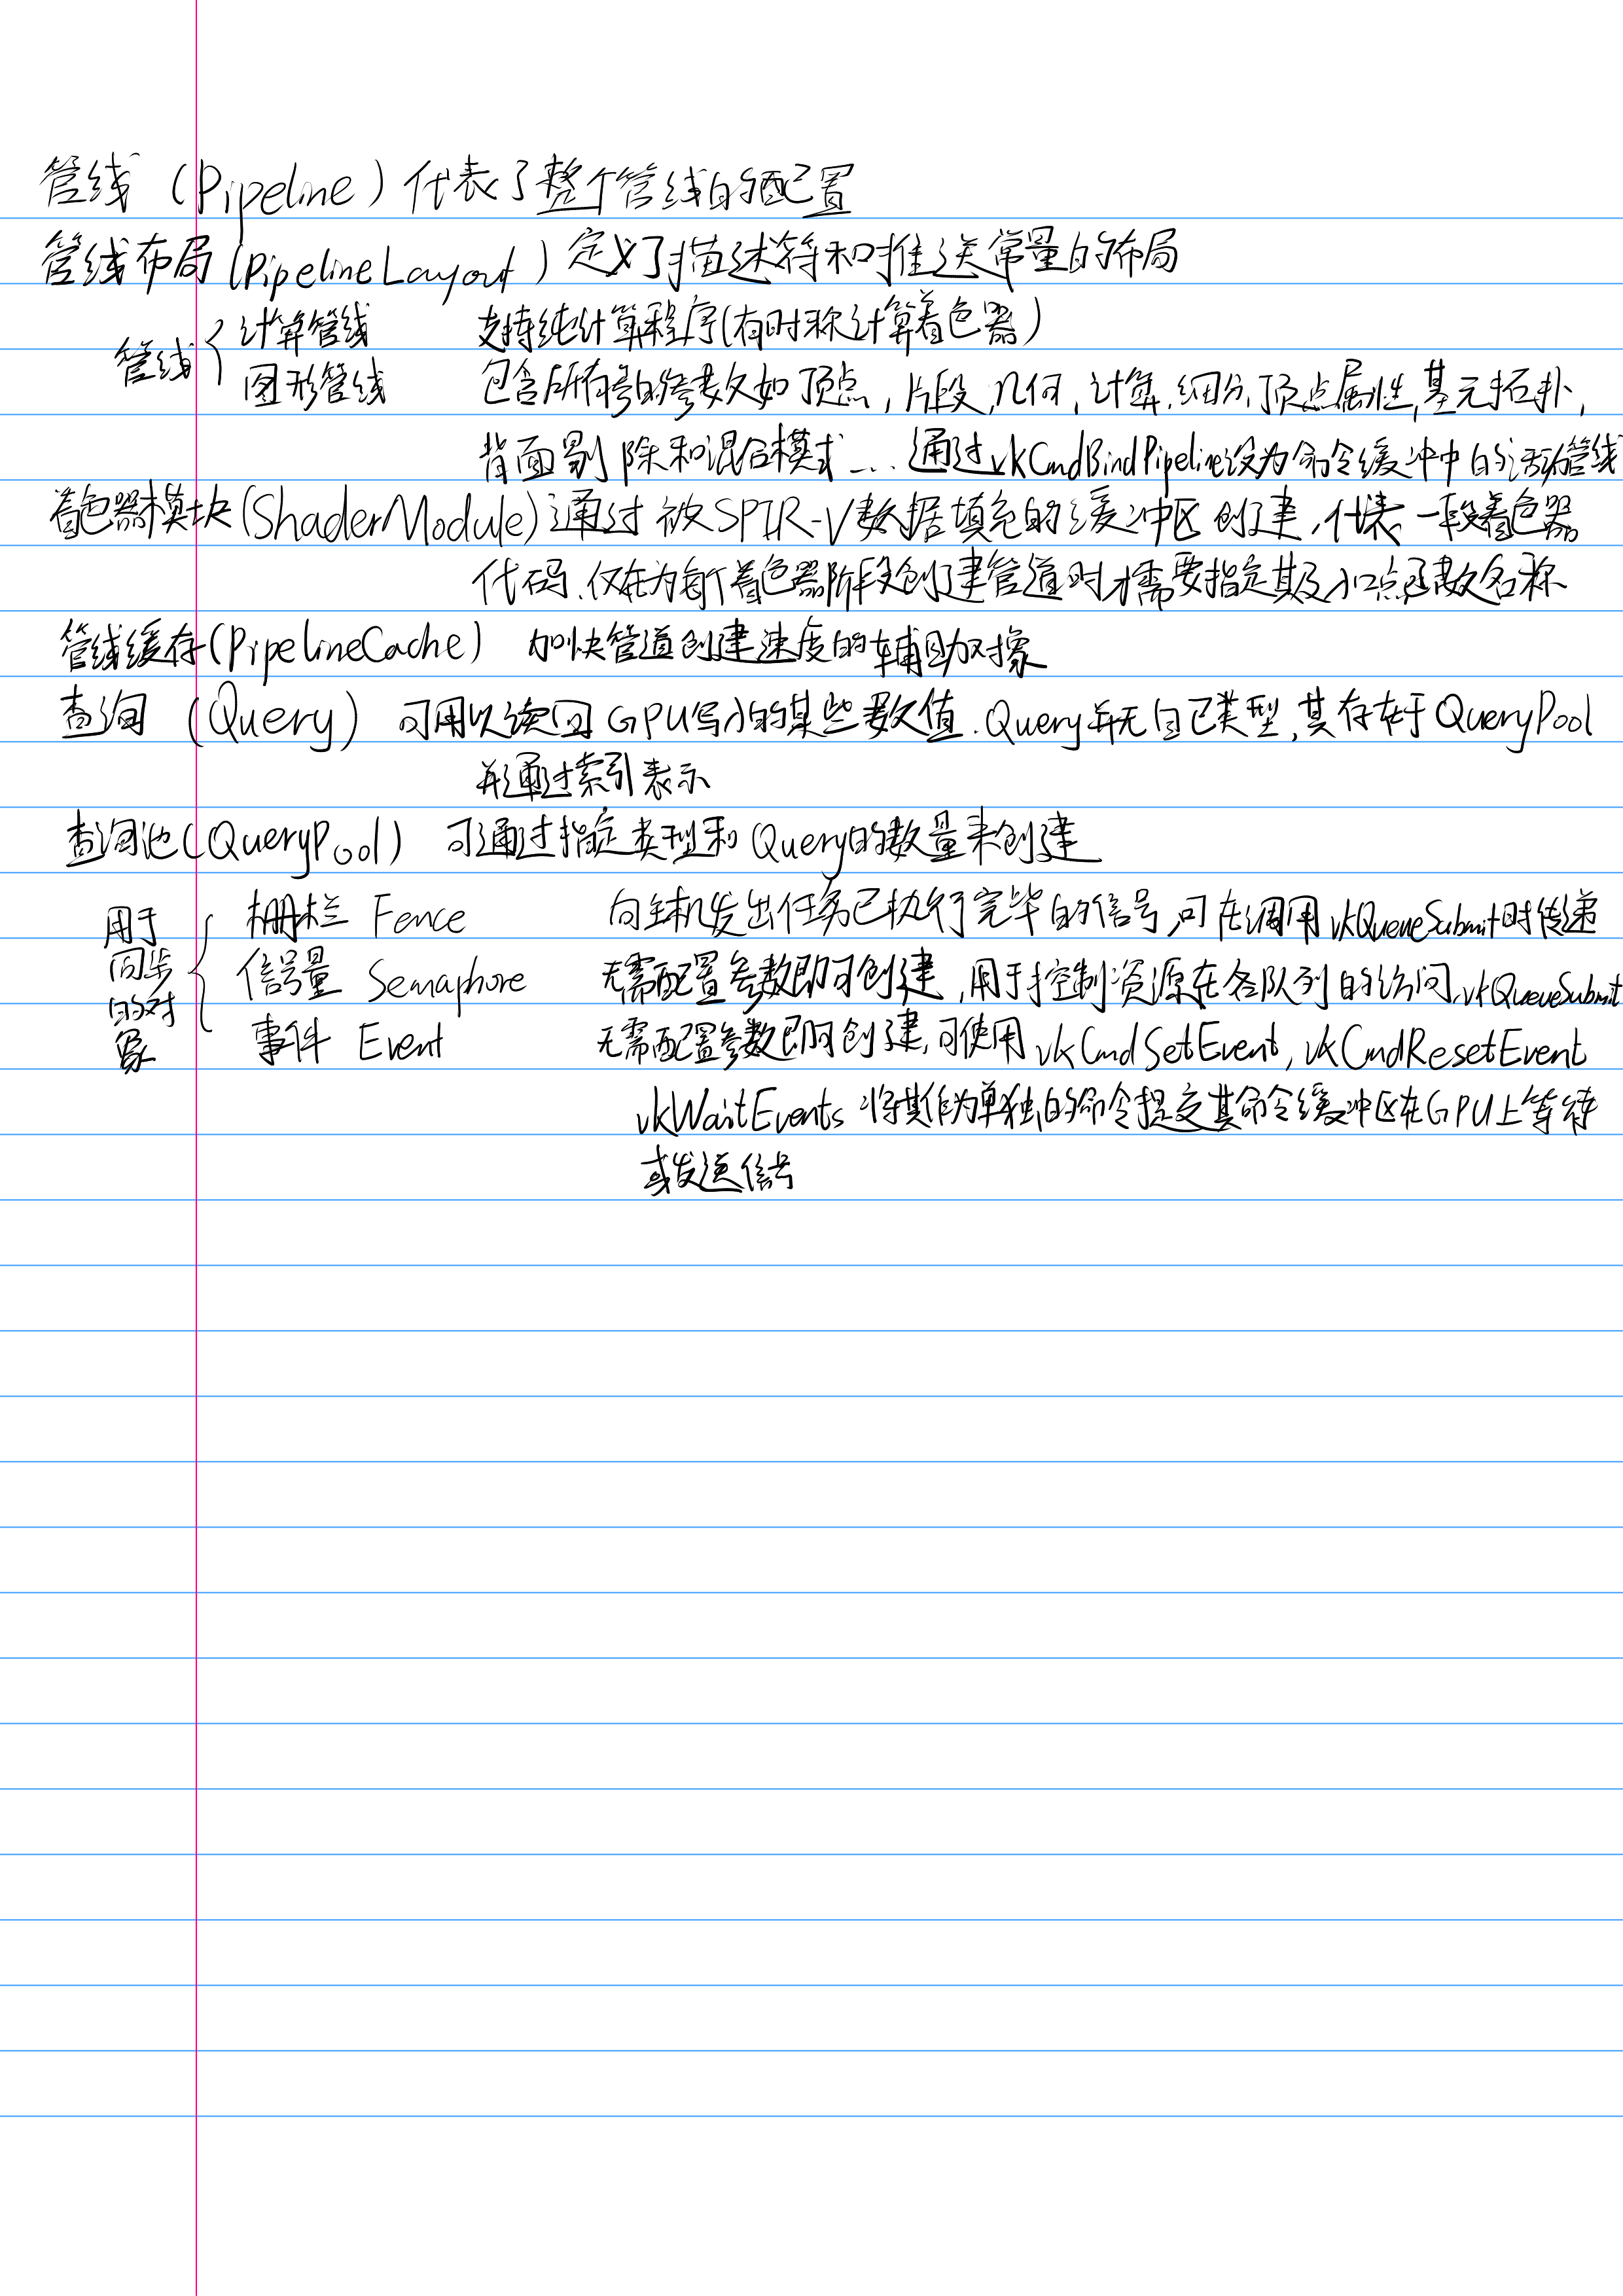 管线 (Pipeline) 代表了整个管线的配置
管线布局 (PipelineLayout) 定义了描述符和推送常量的布局
管线 { 计算管线 支持纯计算程序(有时称计算着色器)
图形管线 包含所有的参数如顶点,片段,几何,计算,细分,顶点属性,基元拓扑,
背面剔除和混合模式... 通过vkCmdBindPipeline设为命令缓冲中的活动管线
着色器模块(ShaderModule) 通过被SPIR-V数据填充的缓冲区创建,代表一段着色器
代码.仅在为每个着色器阶段创建管道时才需要指定其及入口点函数名称
管线缓存(PipelineCache) 加快管道创建速度的辅助对象
查询 (Query) 可用以读回GPU写入的某些数值.Query并无自己类型,其存在于QueryPool
并通过索引表示
查询池(QueryPool) 可通过指定类型和Query的数量来创建
用于同步的对象 { 栅栏 Fence 向主机发出任务已执行完毕的信号,可在调用vkQueueSubmit时传递
信号量 Semaphore 无需配置参数即可创建,用于控制资源在各队列的访问.vkQueueSubmit
事件 Event 无需配置参数即可创建,可使用vkCmdSetEvent,vkCmdResetEvent
vkWaitEvents 将其作为单独的命令提交其命令缓冲区在GPU上等待
或发送信号